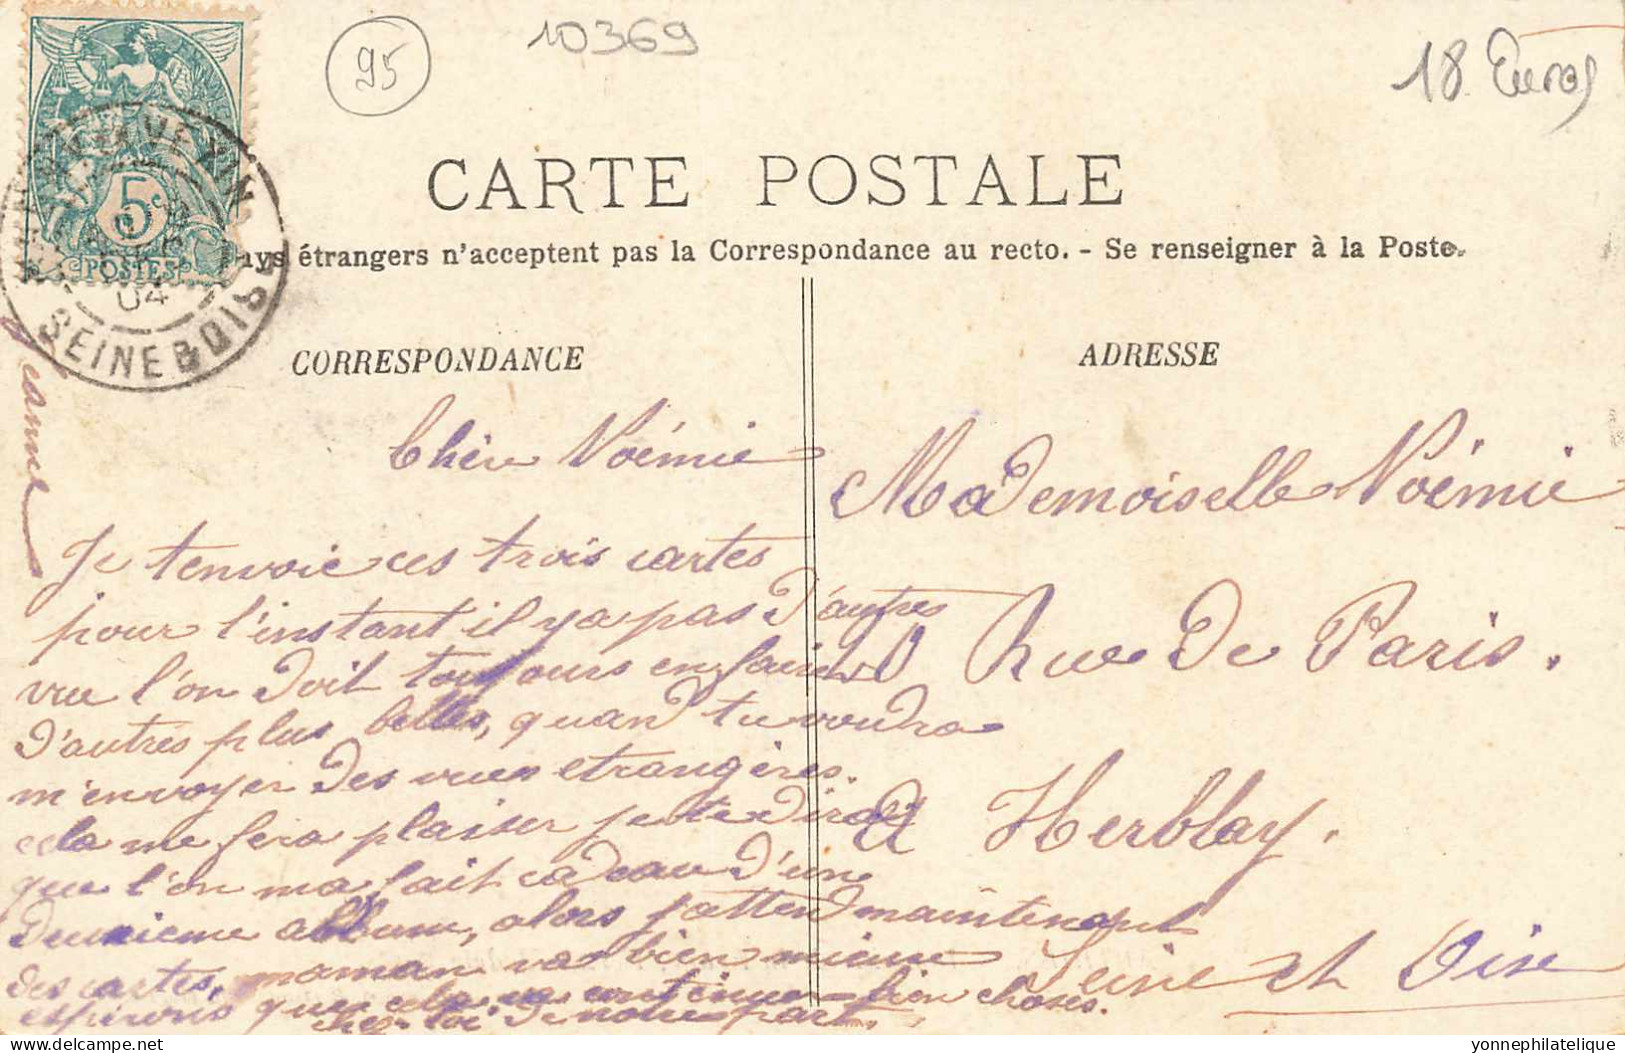 95
10369
18 Euros
5c
POSTES
04
SEINE & OISE
CARTE POSTALE
étrangers n'acceptent pas la Correspondance au recto. - Se renseigner à la Poste.
CORRESPONDANCE
ADRESSE
Chère Noémie
Je tenvoie ces trois cartes
pour l'instant il y a pas d'autres
vue l'on doit toujours en faire
d'autres plus belles, quand tu voudra
m'envoyer des vues etrangères.
cela me fera plaisir je te dirai
que l'on ma fait cadeau d'un
deuxieme album, alors j'attend maintenant
des cartes, maman va bien mieux
espérons que cela va continuer bien choses
chez toi de notre part.
Jeanne
Mademoiselle Noémie
Rue de Paris.
A Herblay.
Seine et Oise
yonnephilatelique